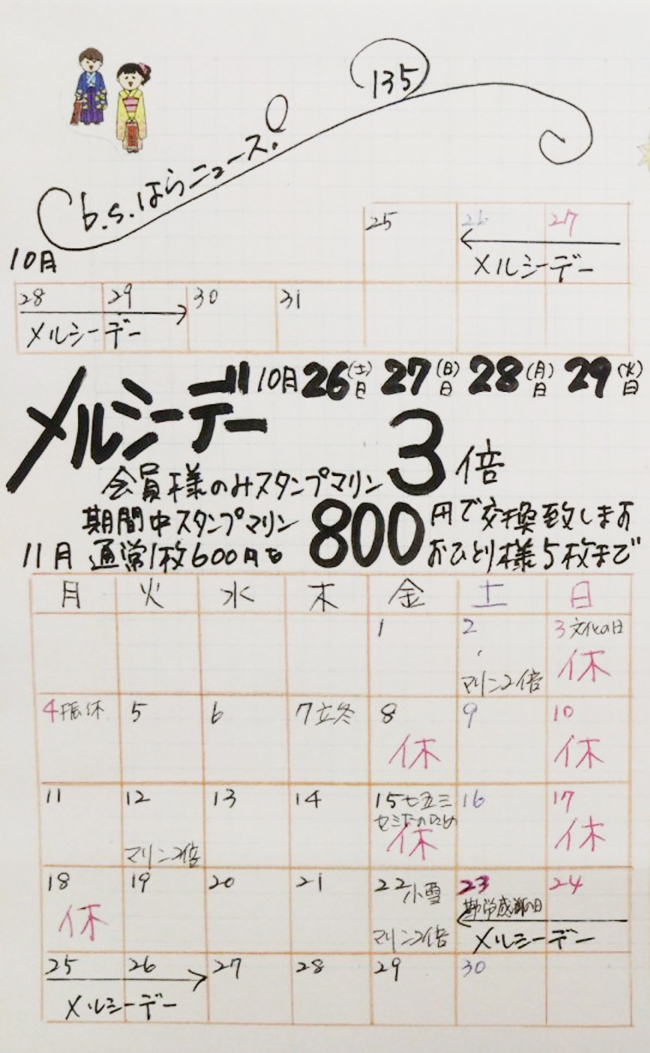 135
b.s.はらニュース!
10月
25 26 27
メルシーデー
28 29 30 31
メルシーデー
メルシーデー 10月26(土)日 27(日)日 28(月)日 29(火)日
会員様のみスタンプマリン3倍
期間中スタンプマリン
通常1枚600円を800円で交換致します
おひとり様5枚まで
11月
月 火 水 木 金 土 日
1 2 3文化の日
マリン2倍 休
4振休 5 6 7立冬 8 9 10
休 休
11 12 13 14 15七五三 16 17
セミナーのため
マリン2倍 休 休
18 19 20 21 22小雪 23 24
勤労感謝の日
休 マリン2倍 メルシーデー
25 26 27 28 29 30
メルシーデー